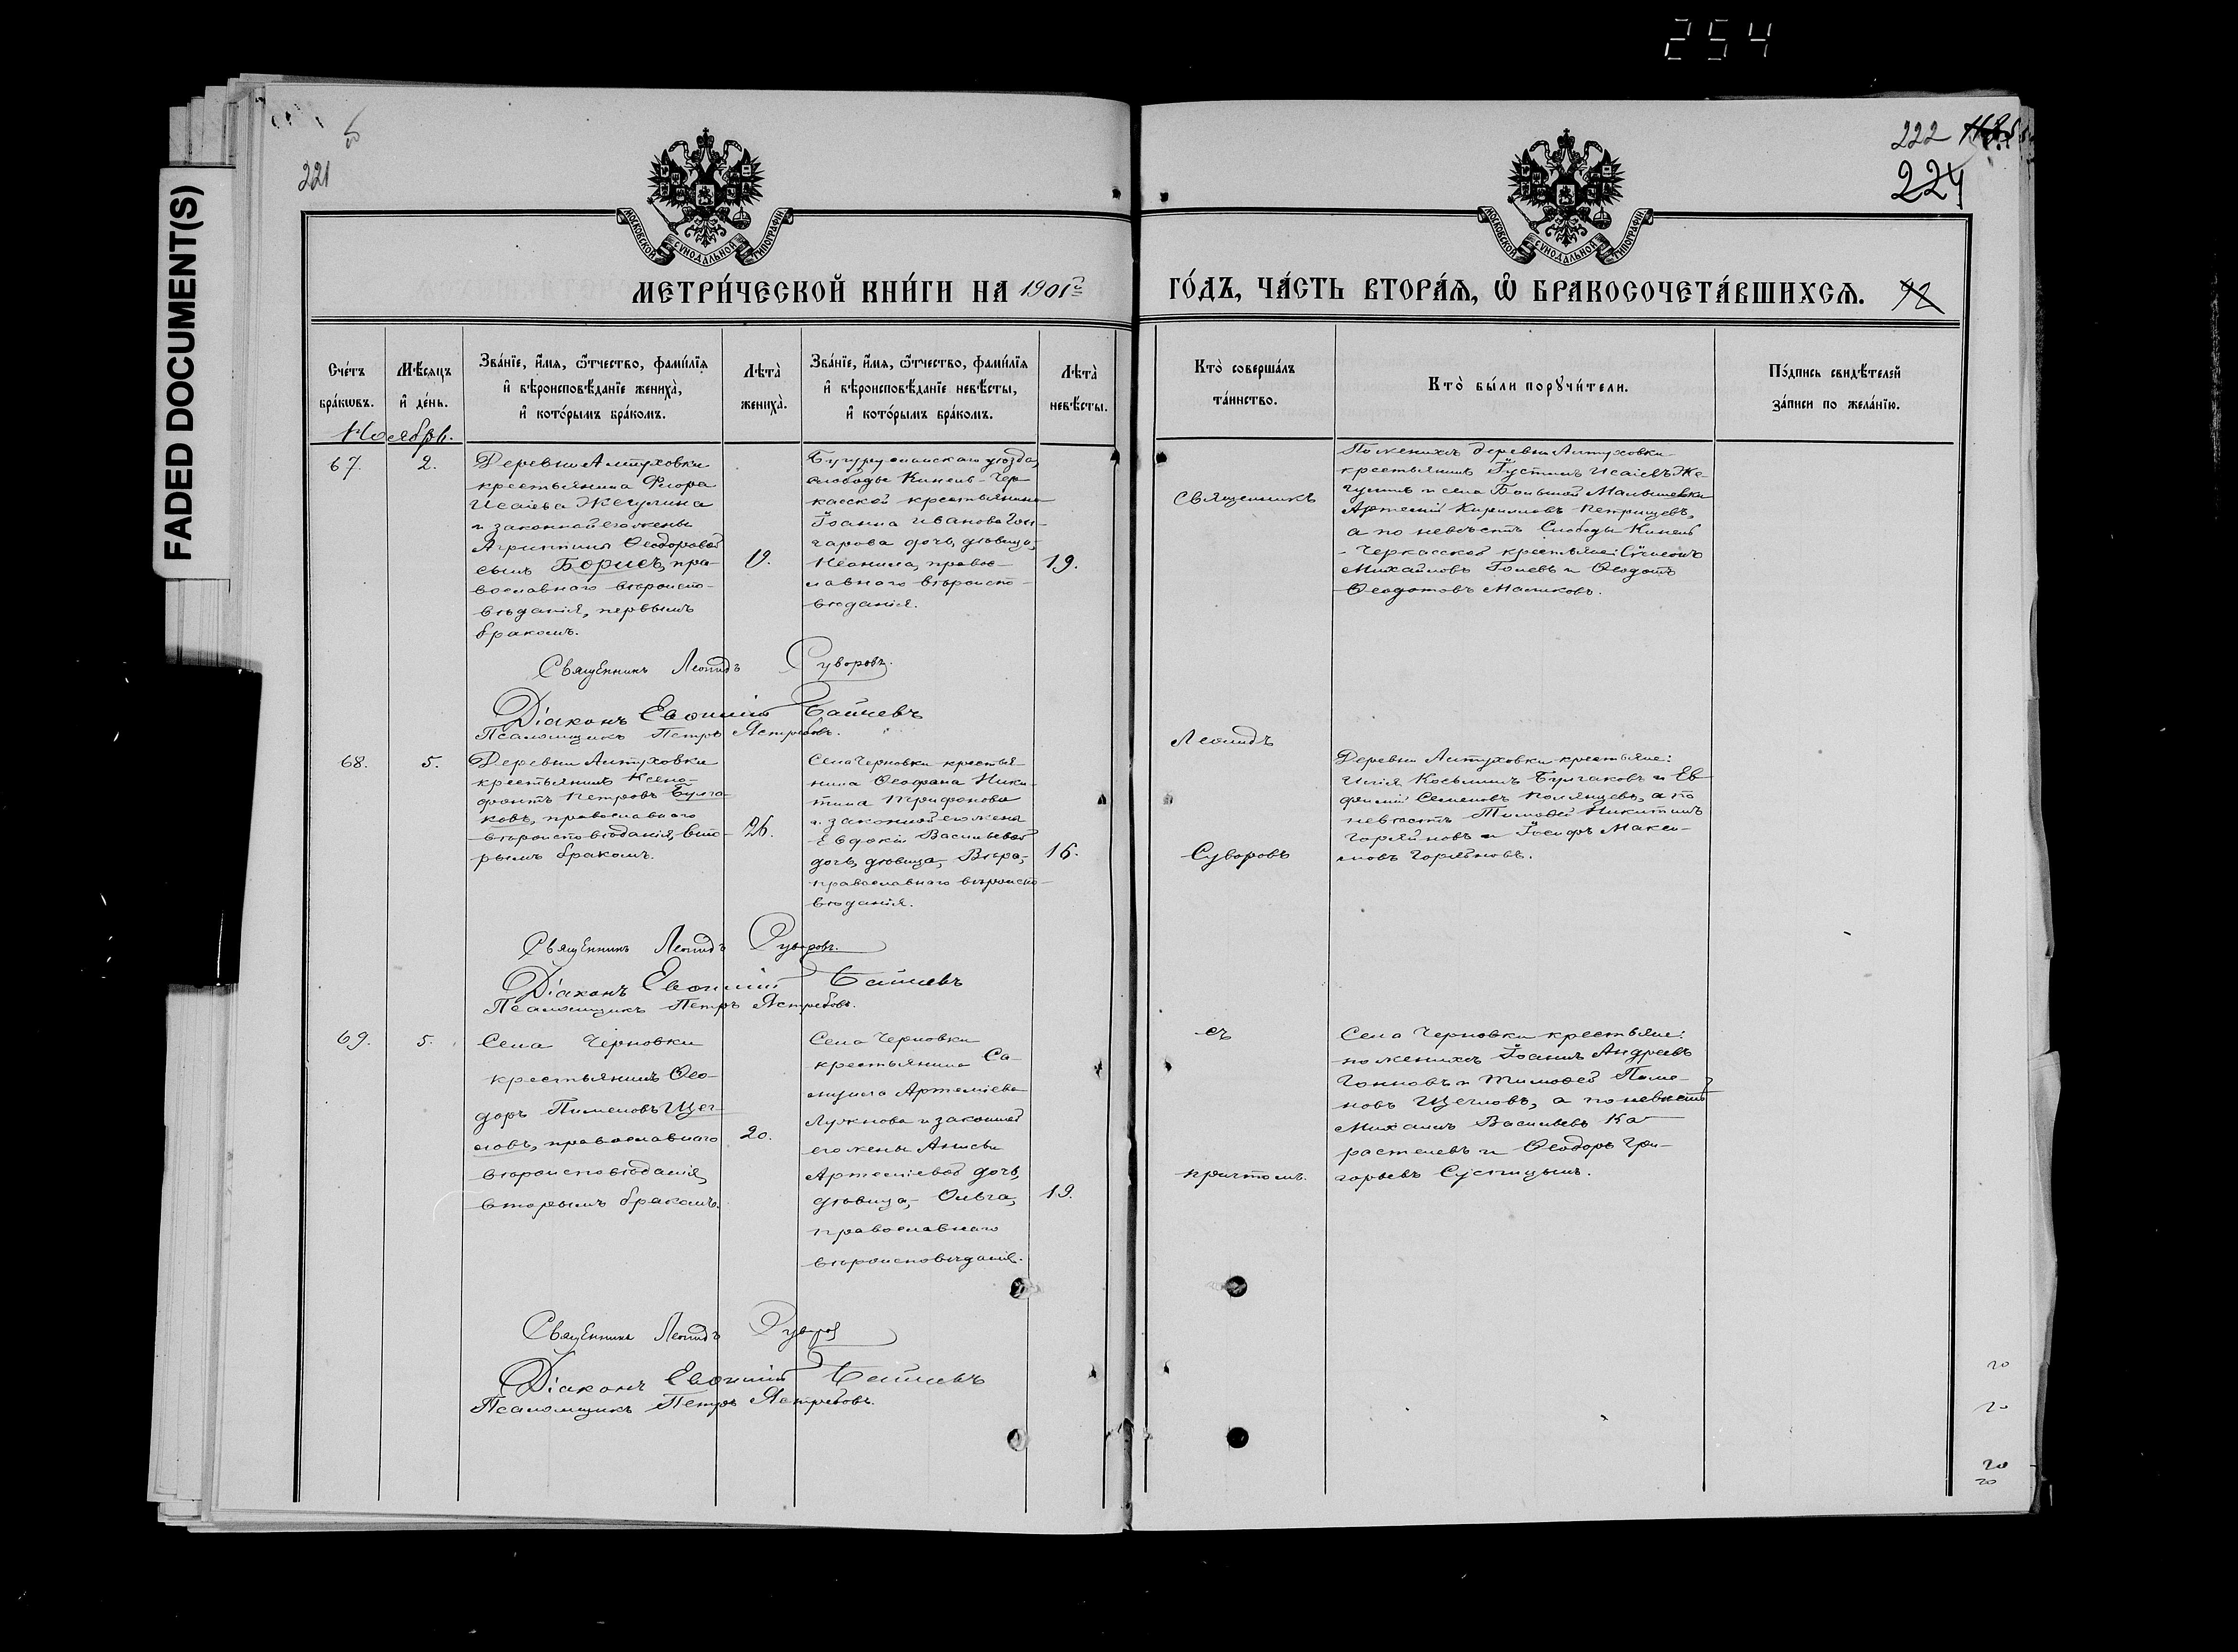 254
FADED DOCUMENT(S)
221
222
224
МОСКОВСКОЙ СѴНОДАЛЬНОЙ ТИПОГРАФІИ
МОСКОВСКОЙ СѴНОДАЛЬНОЙ ТИПОГРАФІИ
МЕТРИ́ЧЕСКОЙ КНИ́ГИ НА 1901 г. ГО́ДЪ, ЧА́СТЬ ВТОРА́Ѧ, Ѽ БРАКОСОЧЕТА́ВШИХСѦ.
Сче́тъ
бра́кѡвъ.
Мѣ́сѧцъ
и҆ де́нь.
Зва́нїе, и҆́мѧ, ѻ҆́тчество, фами́лїѧ
и҆ вѣроисповѣ́данїе жениха̀,
и҆ кото́рымъ бра́комъ.
Лѣта̀
жениха̀.
Зва́нїе, и҆́мѧ, ѻ҆́тчество, фами́лїѧ
и҆ вѣроисповѣ́данїе невѣ́сты,
и҆ кото́рымъ бра́комъ.
Лѣта̀
невѣ́сты.
Кто̀ соверша́лъ
та́инство.
Кто̀ бы́ли порꙋчи́тели.
По́дпись свидѣ́телей
за́писи по жела́нїю.
Ноябрь.
67.
2.
Деревни Алтуховки
крестьянина Флора
Исаіева Жегулина
и законной его жены
Агрипины Ѳеодоровой
сынъ Борисъ, пра-
вославнаго вѣроиспо-
вѣданія, первымъ
бракомъ.
19.
Бугурусланскаго уѣзда,
слободы Кинель-Чер-
касской крестьянина
Іоанна Иванова Гон-
чарова дочь, дѣвица,
Неонила, правос-
лавнаго вѣроиспо-
вѣданія.
19.
Священникъ
По женихѣ деревни Алтуховки
крестьянинъ Густинъ Исаіевъ Же-
гулинъ и села Большой Малышевки
Артемій Кирилловъ Петрищевъ,
а по невѣстѣ Слободы Кинель
-Черкасской крестьяне: Симеонъ
Михайловъ Голевъ и Ѳеодотъ
Ѳеодотовъ Маликовъ.
Священникъ Леонидъ Суворовъ.
Діаконъ Евѳимій
Псаломщикъ Петръ Ястребовъ.
Леонидъ
68.
5.
Деревни Алтуховки
крестьянинъ Ксено-
фонтъ Петровъ Булга-
ковъ, православнаго
вѣроисповѣданія, вто-
рымъ бракомъ.
26.
Села Черновки крестья-
нина Ѳеофана Ники-
тина Трифонова
и законной его жены
Евдокіи Васильевой
дочь, дѣвица, Вѣра,
православнаго вѣроиспо-
вѣданія.
16.
Суворовъ
Деревни Алтуховки крестьяне:
Илія Косьминъ Булгаковъ и Ев-
фимій Семеновъ Полянцевъ, а по
невѣстѣ Тимоѳей Никитинъ
Горяйновъ и Іосифъ Макси-
мовъ Горяйновъ.
Священникъ Леонидъ Суворовъ.
Діаконъ Евѳимій
Псаломщикъ Петръ Ястребовъ.
69.
5.
Села Черновки
крестьянинъ Ѳео-
доръ Пименовъ Щег-
ловъ, православнаго
вѣроисповѣданія,
вторымъ бракомъ.
20.
Села Черновки
крестьянина Са-
муила Артеміева
и законной
его жены Анисьи
Артеміевой дочь,
дѣвица, Ольга,
православнаго
вѣроисповѣданія.
19.
съ
причтомъ.
Села Черновки крестьяне:
по женихѣ Іоаннъ Андреевъ
и Тимоѳей Пиме-
новъ Щегловъ, а по невѣстѣ
Михаилъ Васильевъ Ка-
и Ѳеодоръ Гри-
горьевъ
Священникъ Леонидъ Суворовъ
Діаконъ Евѳимій
Псаломщикъ Петръ Ястребовъ.
20
20
20
20